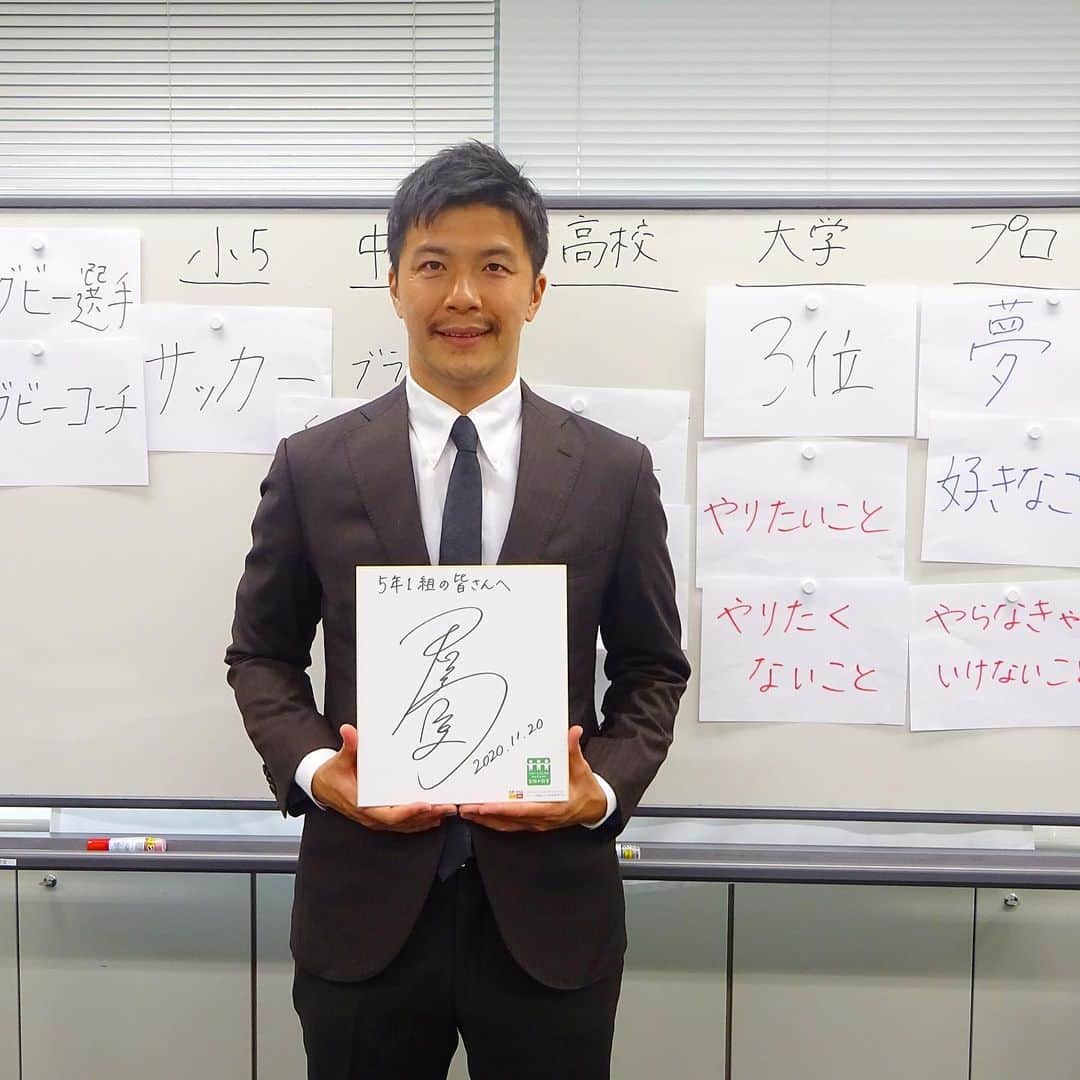 小5
高校
大学
プロ
グビー選手
グビーコーチ
サッカー
ブラ
3位
やりたいこと
やりたく
ないこと
夢
好きなこ
やらなきゃ
いけないこと
5年1組の皆さんへ
2020.11.20